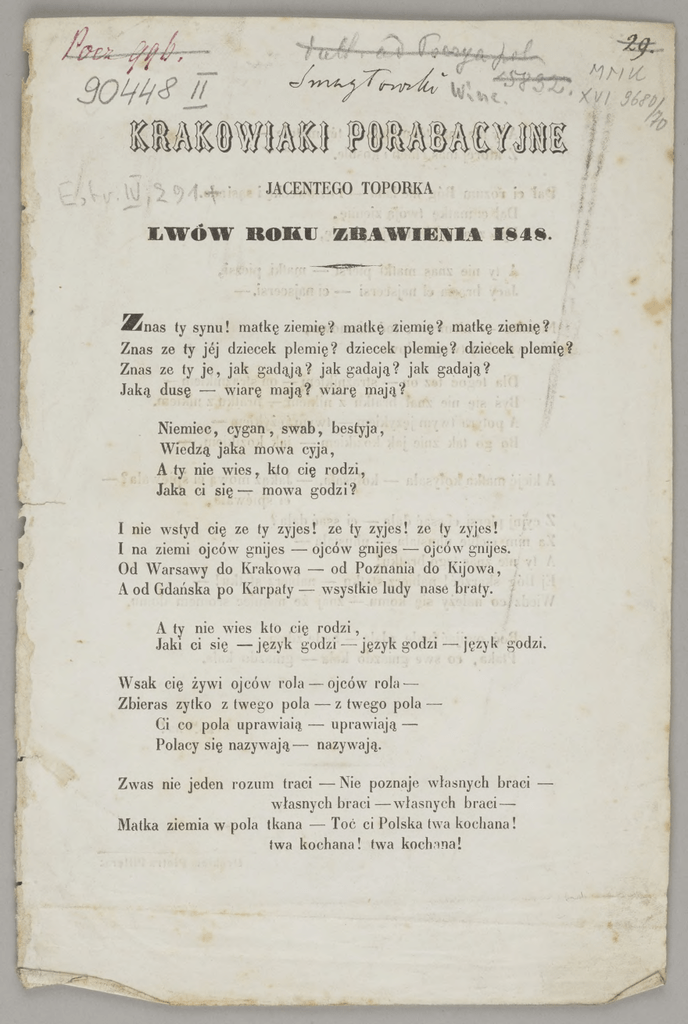 29.
90448 II
MNK
XVI 9680/70
KRAKOWIAKI PORABACYJNE
E,tr. IV, 291+
JACENTEGO TOPORKA
LWÓW ROKU ZBAWIENIA 1848.
Znas ty synu! matkę ziemię? matkę ziemię? matkę ziemię?
Znas ze ty jéj dziecek plemię? dziecek plemię? dziecek plemię?
Znas ze ty je, jak gadąją? jak gadają? jak gadają?
Jaką dusę — wiarę mają? wiarę mają?
Niemiec, cygan, swab, bestyja,
Wiedzą jaka mowa cyja,
A ty nie wies, kto cię rodzi,
Jaka ci się — mowa godzi?
I nie wstyd cię ze ty zyjes! ze ty zyjes! ze ty zyjes!
I na ziemi ojców gnijes — ojców gnijes — ojców gnijes.
Od Warsawy do Krakowa — od Poznania do Kijowa,
A od Gdańska po Karpaty — wsystkie ludy nase braty.
A ty nie wies kto cię rodzi,
Jaki ci się — język godzi — język godzi — język godzi.
Wsak cię żywi ojców rola — ojców rola —
Zbieras zytko z twego pola — z twego pola —
Ci co pola uprawiaią — uprawiają —
Polacy się nazywają — nazywają.
Zwas nie jeden rozum traci — Nie poznaje własnych braci —
własnych braci — własnych braci —
Matka ziemia w pola tkana — Toć ci Polska twa kochana!
twa kochana! twa kochana!